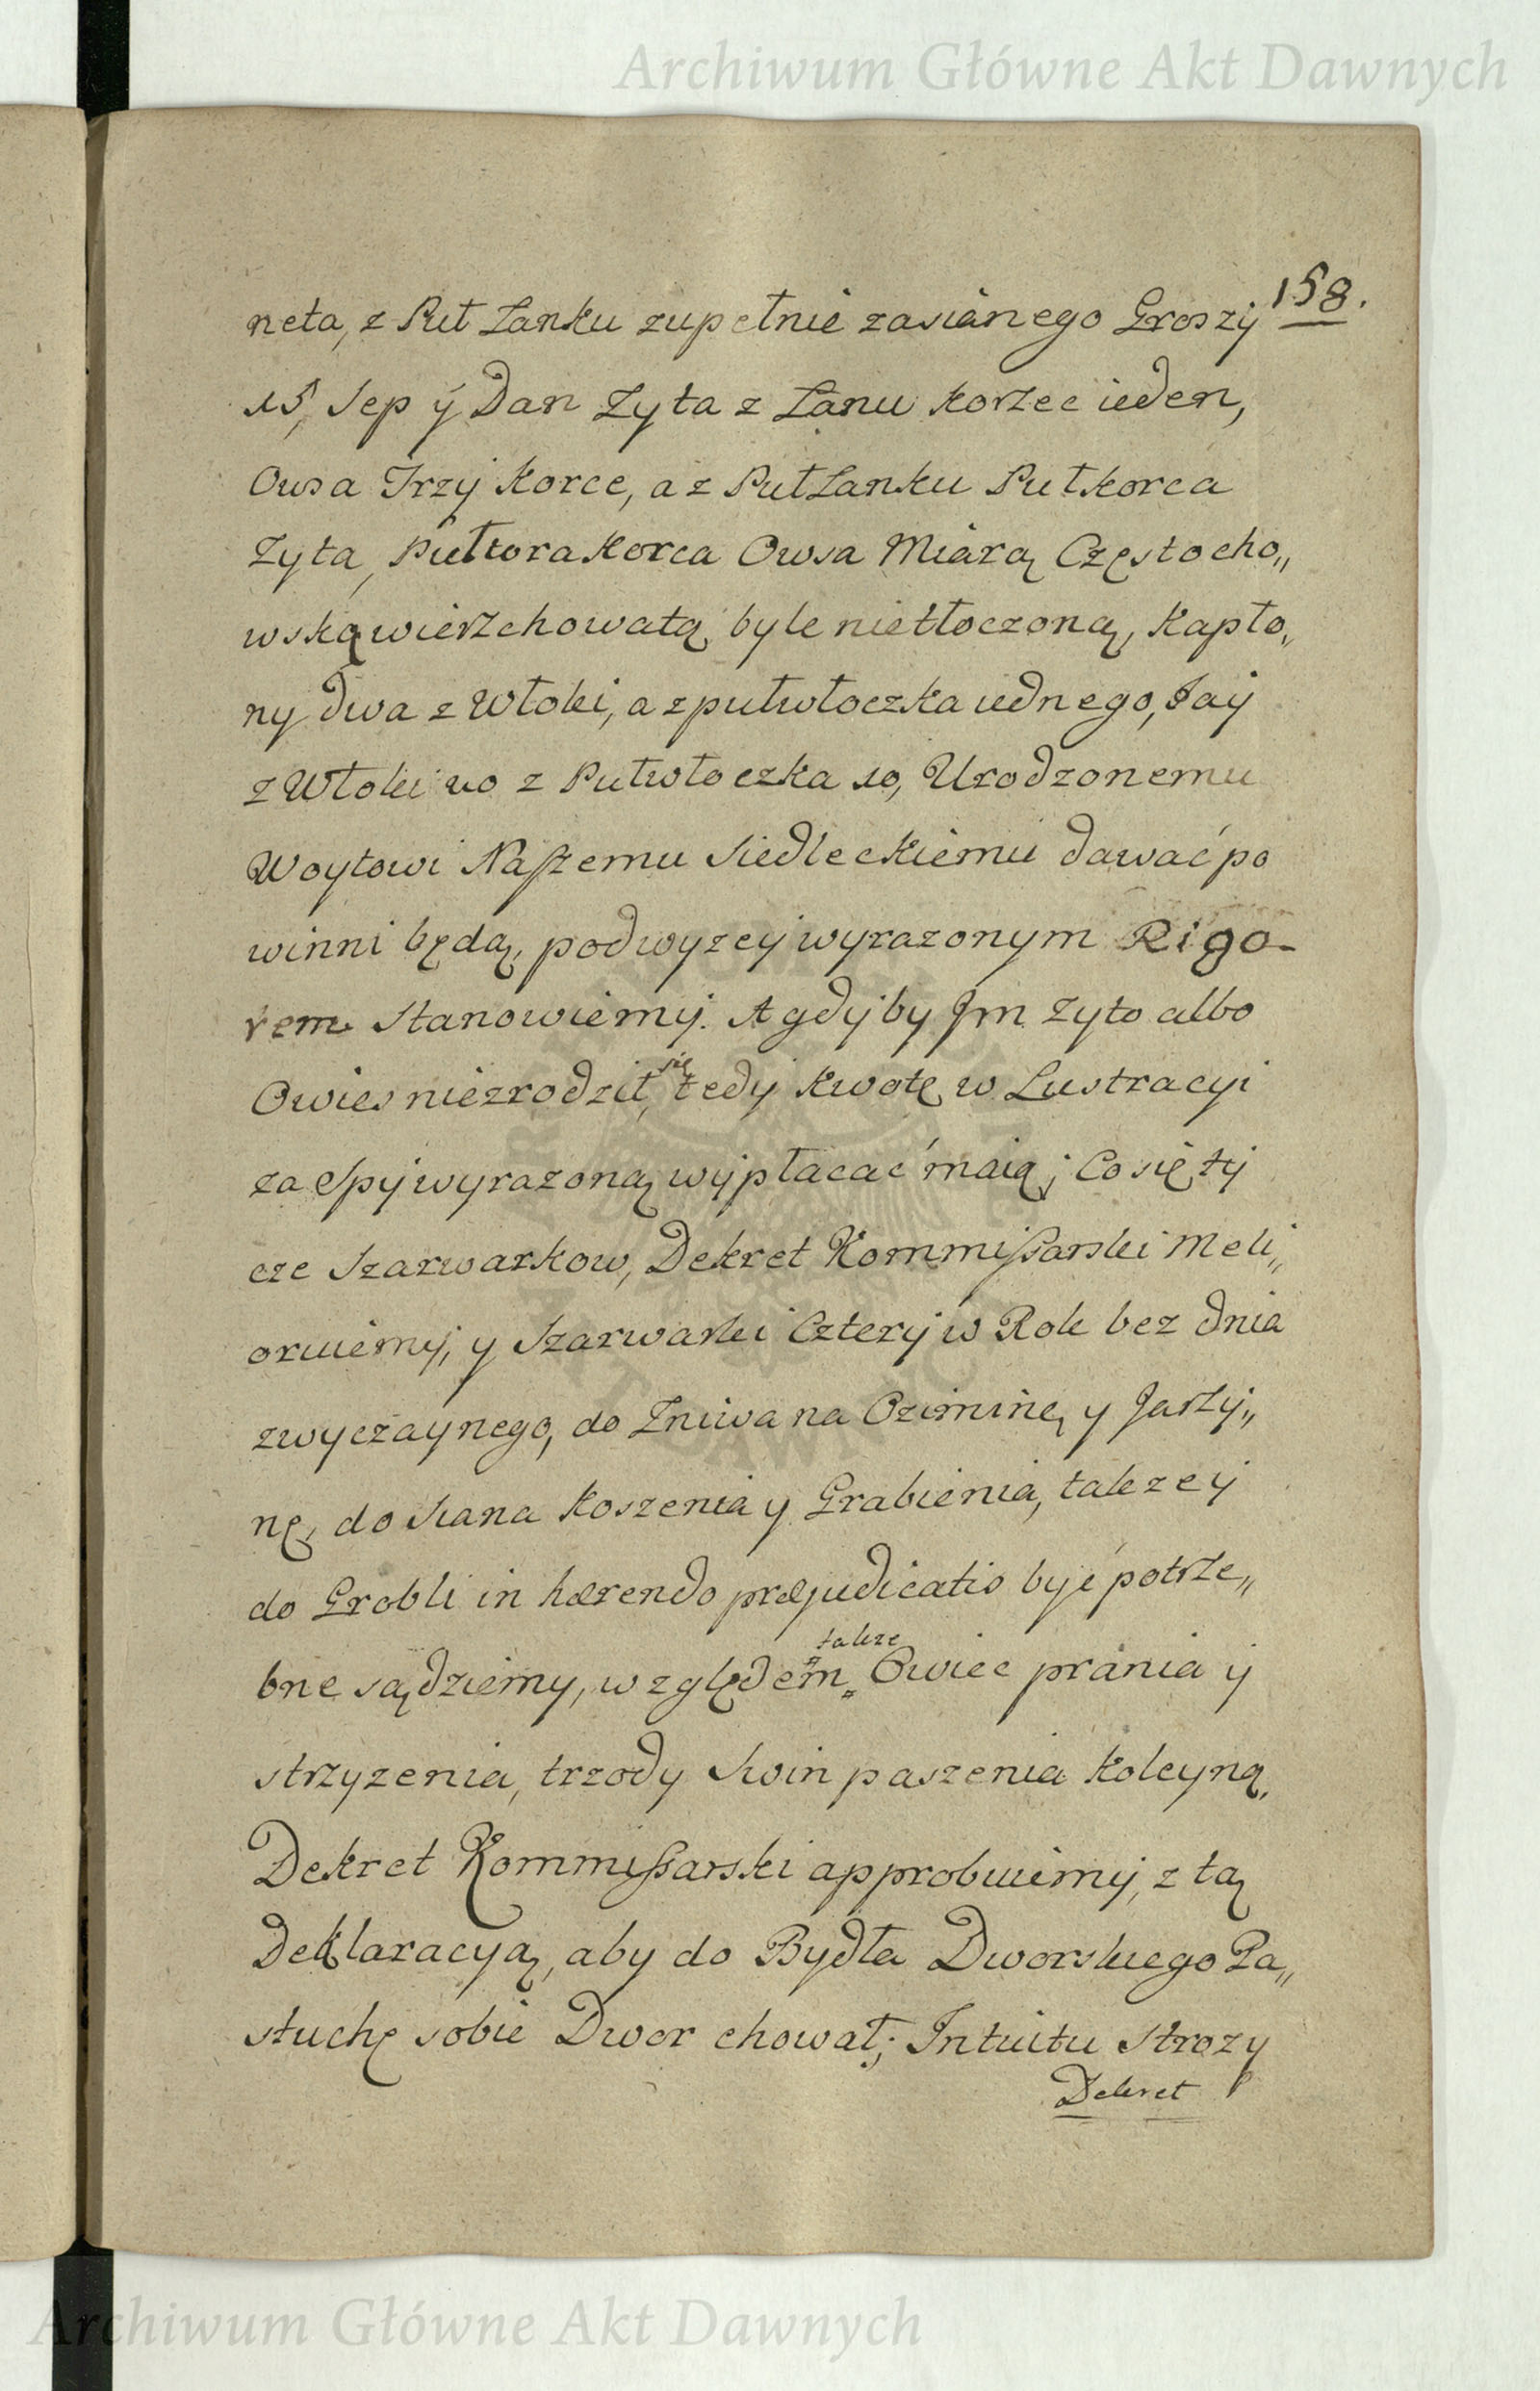 Archiwum Główne Akt Dawnych
158.
neta, z Puł Łanku zupełnie zasianego Groszy
15, Sep y Dan Zyta z Łanu korzec ieden,
Owsa Trzy korce, a z PułŁanku Pułkorca
Zyta, Pułtora korca Owsa Miarą Częstocho„
wską wierzchowatą byle nietłoczoną, Kapło„
ny dwa z Włoki, a z pułwłoczka iednego, Jay
z Włoki 20 z Pułwłoczka 10, Urodzonemu
Woytowi Naszemu Siedleckiemu dawać po
winni będą, podwyzey wyrazonym Rigo-
rem Stanowiemy. A gdyby Im Zyto albo
Owies niezrodził się, tedy kwotę w Lustracyi
za Spy wyrazoną wypłacać maią; Co się ty
cze Szarwarkow, Dekret Kommissarski Meli„
oruiemy, y Szarwarki Cztery w Rok bez dnia
zwyczaynego, do Zniwa na Oziminę y Jarzy„
nę, do siana koszenia y Grabienia, takze y
do Grobli in hærendo præjudicatis być potrze„
bne sądziemy, względem takze Owiec prania y
strzyzenia, trzody Swin paszenia koleyną,
Dekret Kommissarski approbuiemy, z tą
Deklaracyą, aby do Bydła Dworskiego Pa„
stuchę sobie Dwor chował; Intuitu Strozy
Dekret
Archiwum Główne Akt Dawnych